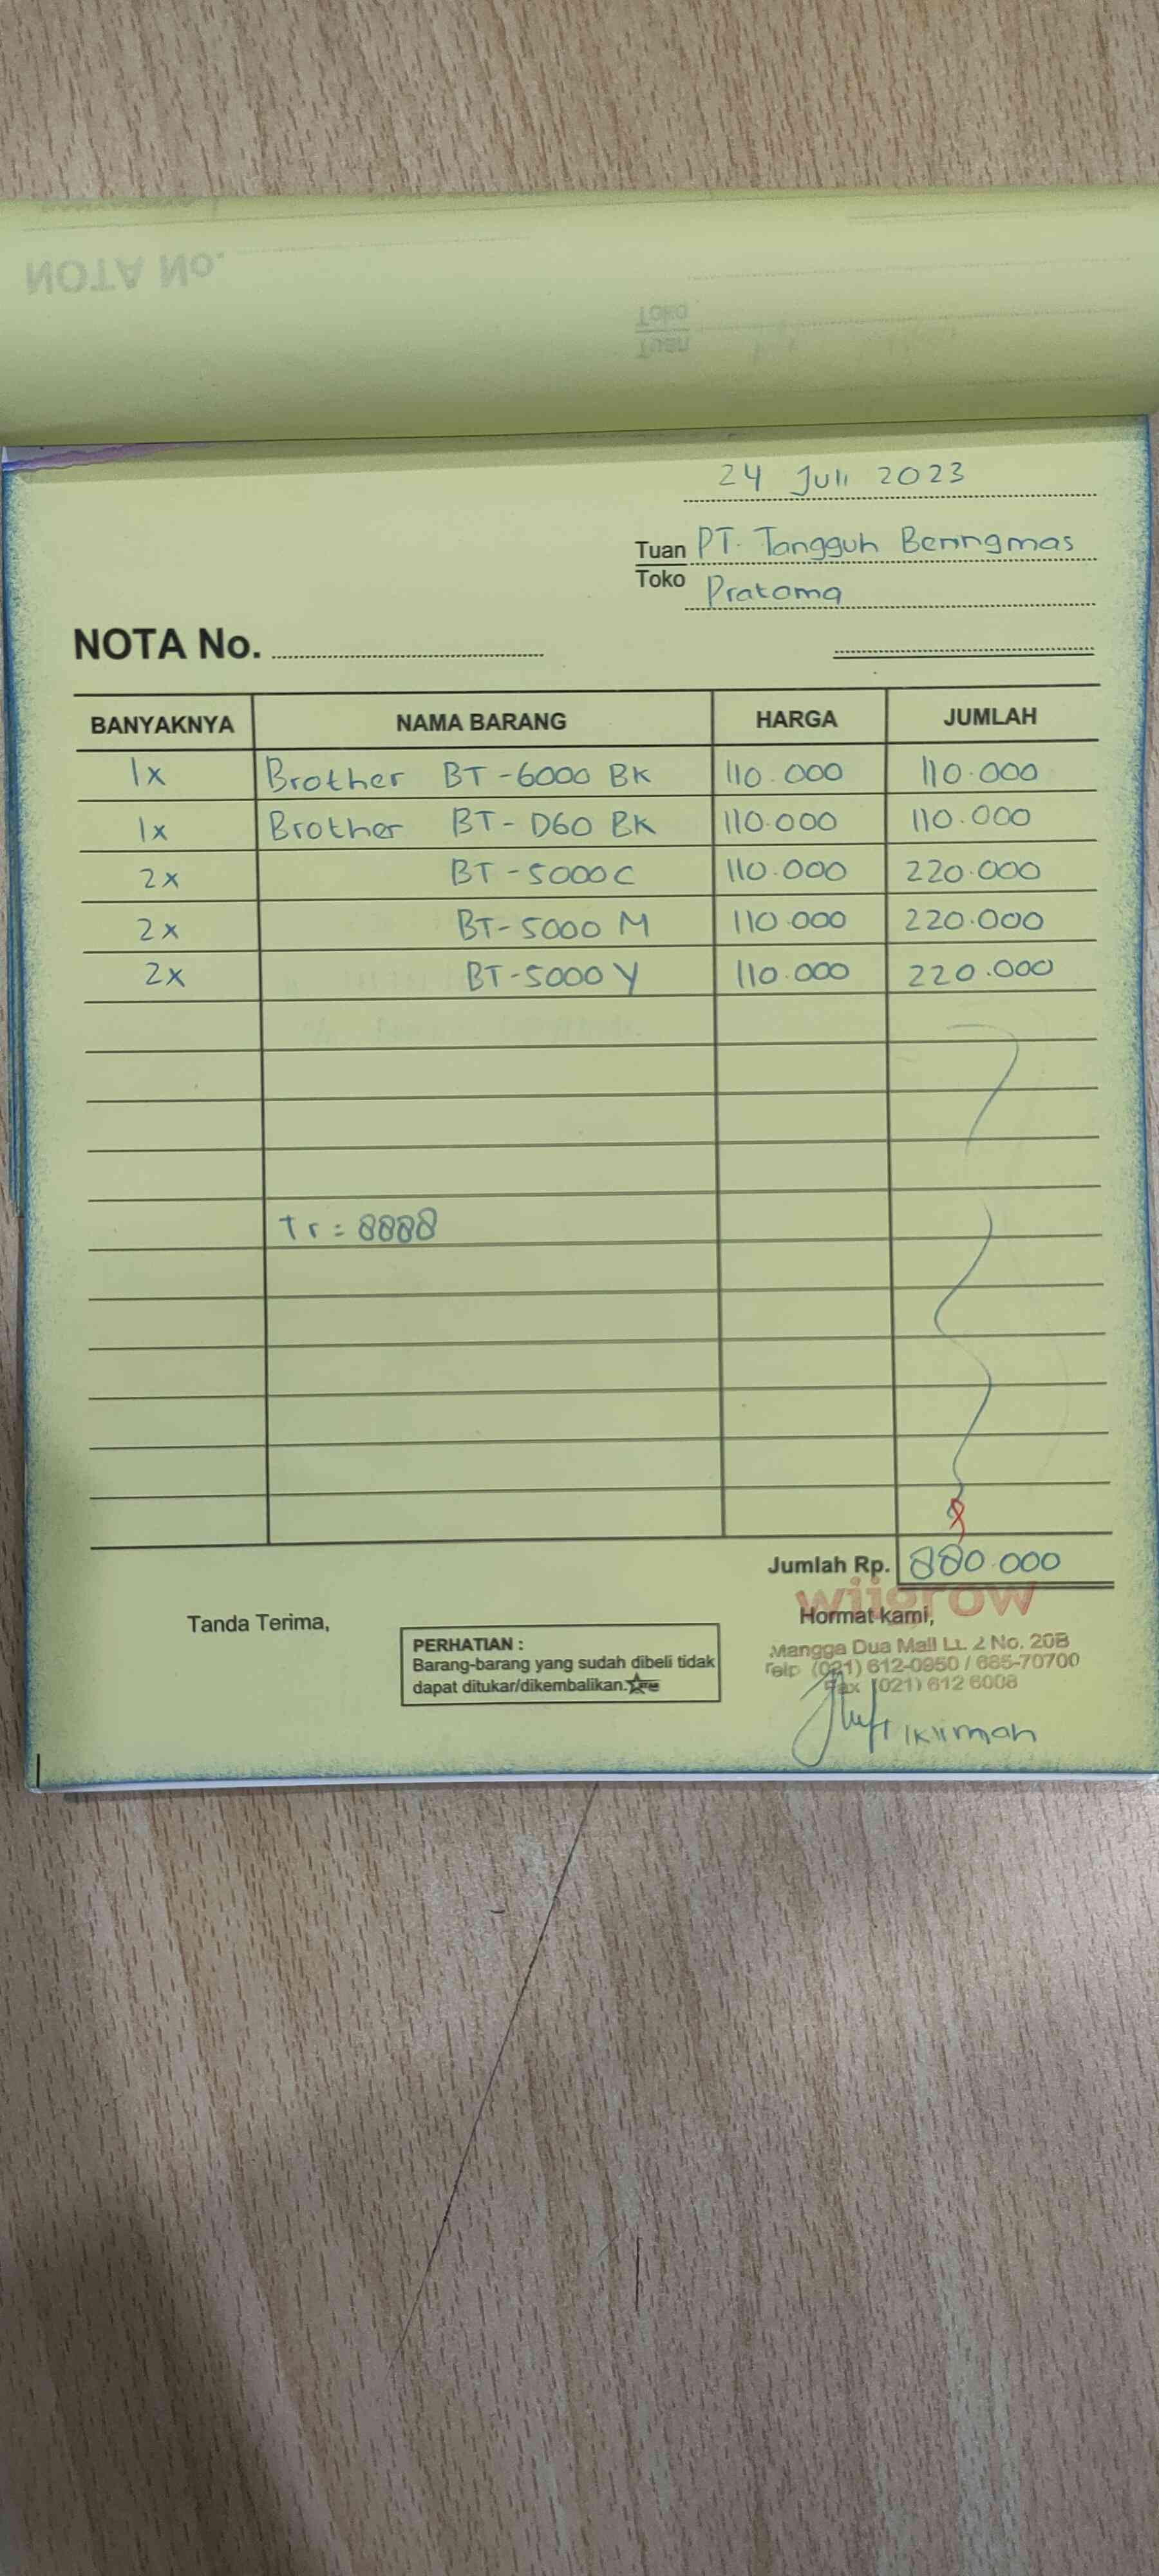 NOTA No.
Toko
Tuan
24 Juli 2023
Tuan PT. Tangguh Beringmas
Toko Pratama
NOTA No.
BANYAKNYA NAMA BARANG HARGA JUMLAH
1x Brother BT-6000 BK 110.000 110.000
1x Brother BT-D60 BK 110.000 110.000
2x BT-5000C 110.000 220.000
2x BT-5000 M 110.000 220.000
2x BT-5000 Y 110.000 220.000
Tr = 8888
Jumlah Rp. 880.000
wijgrow
Tanda Terima,
Hormat kami,
PERHATIAN :
Barang-barang yang sudah dibeli tidak
dapat ditukar/dikembalikan.
Mangga Dua Mall Lt. 2 No. 20B
Telp (021) 612-0950 / 685-70700
Fax (021) 612 6008